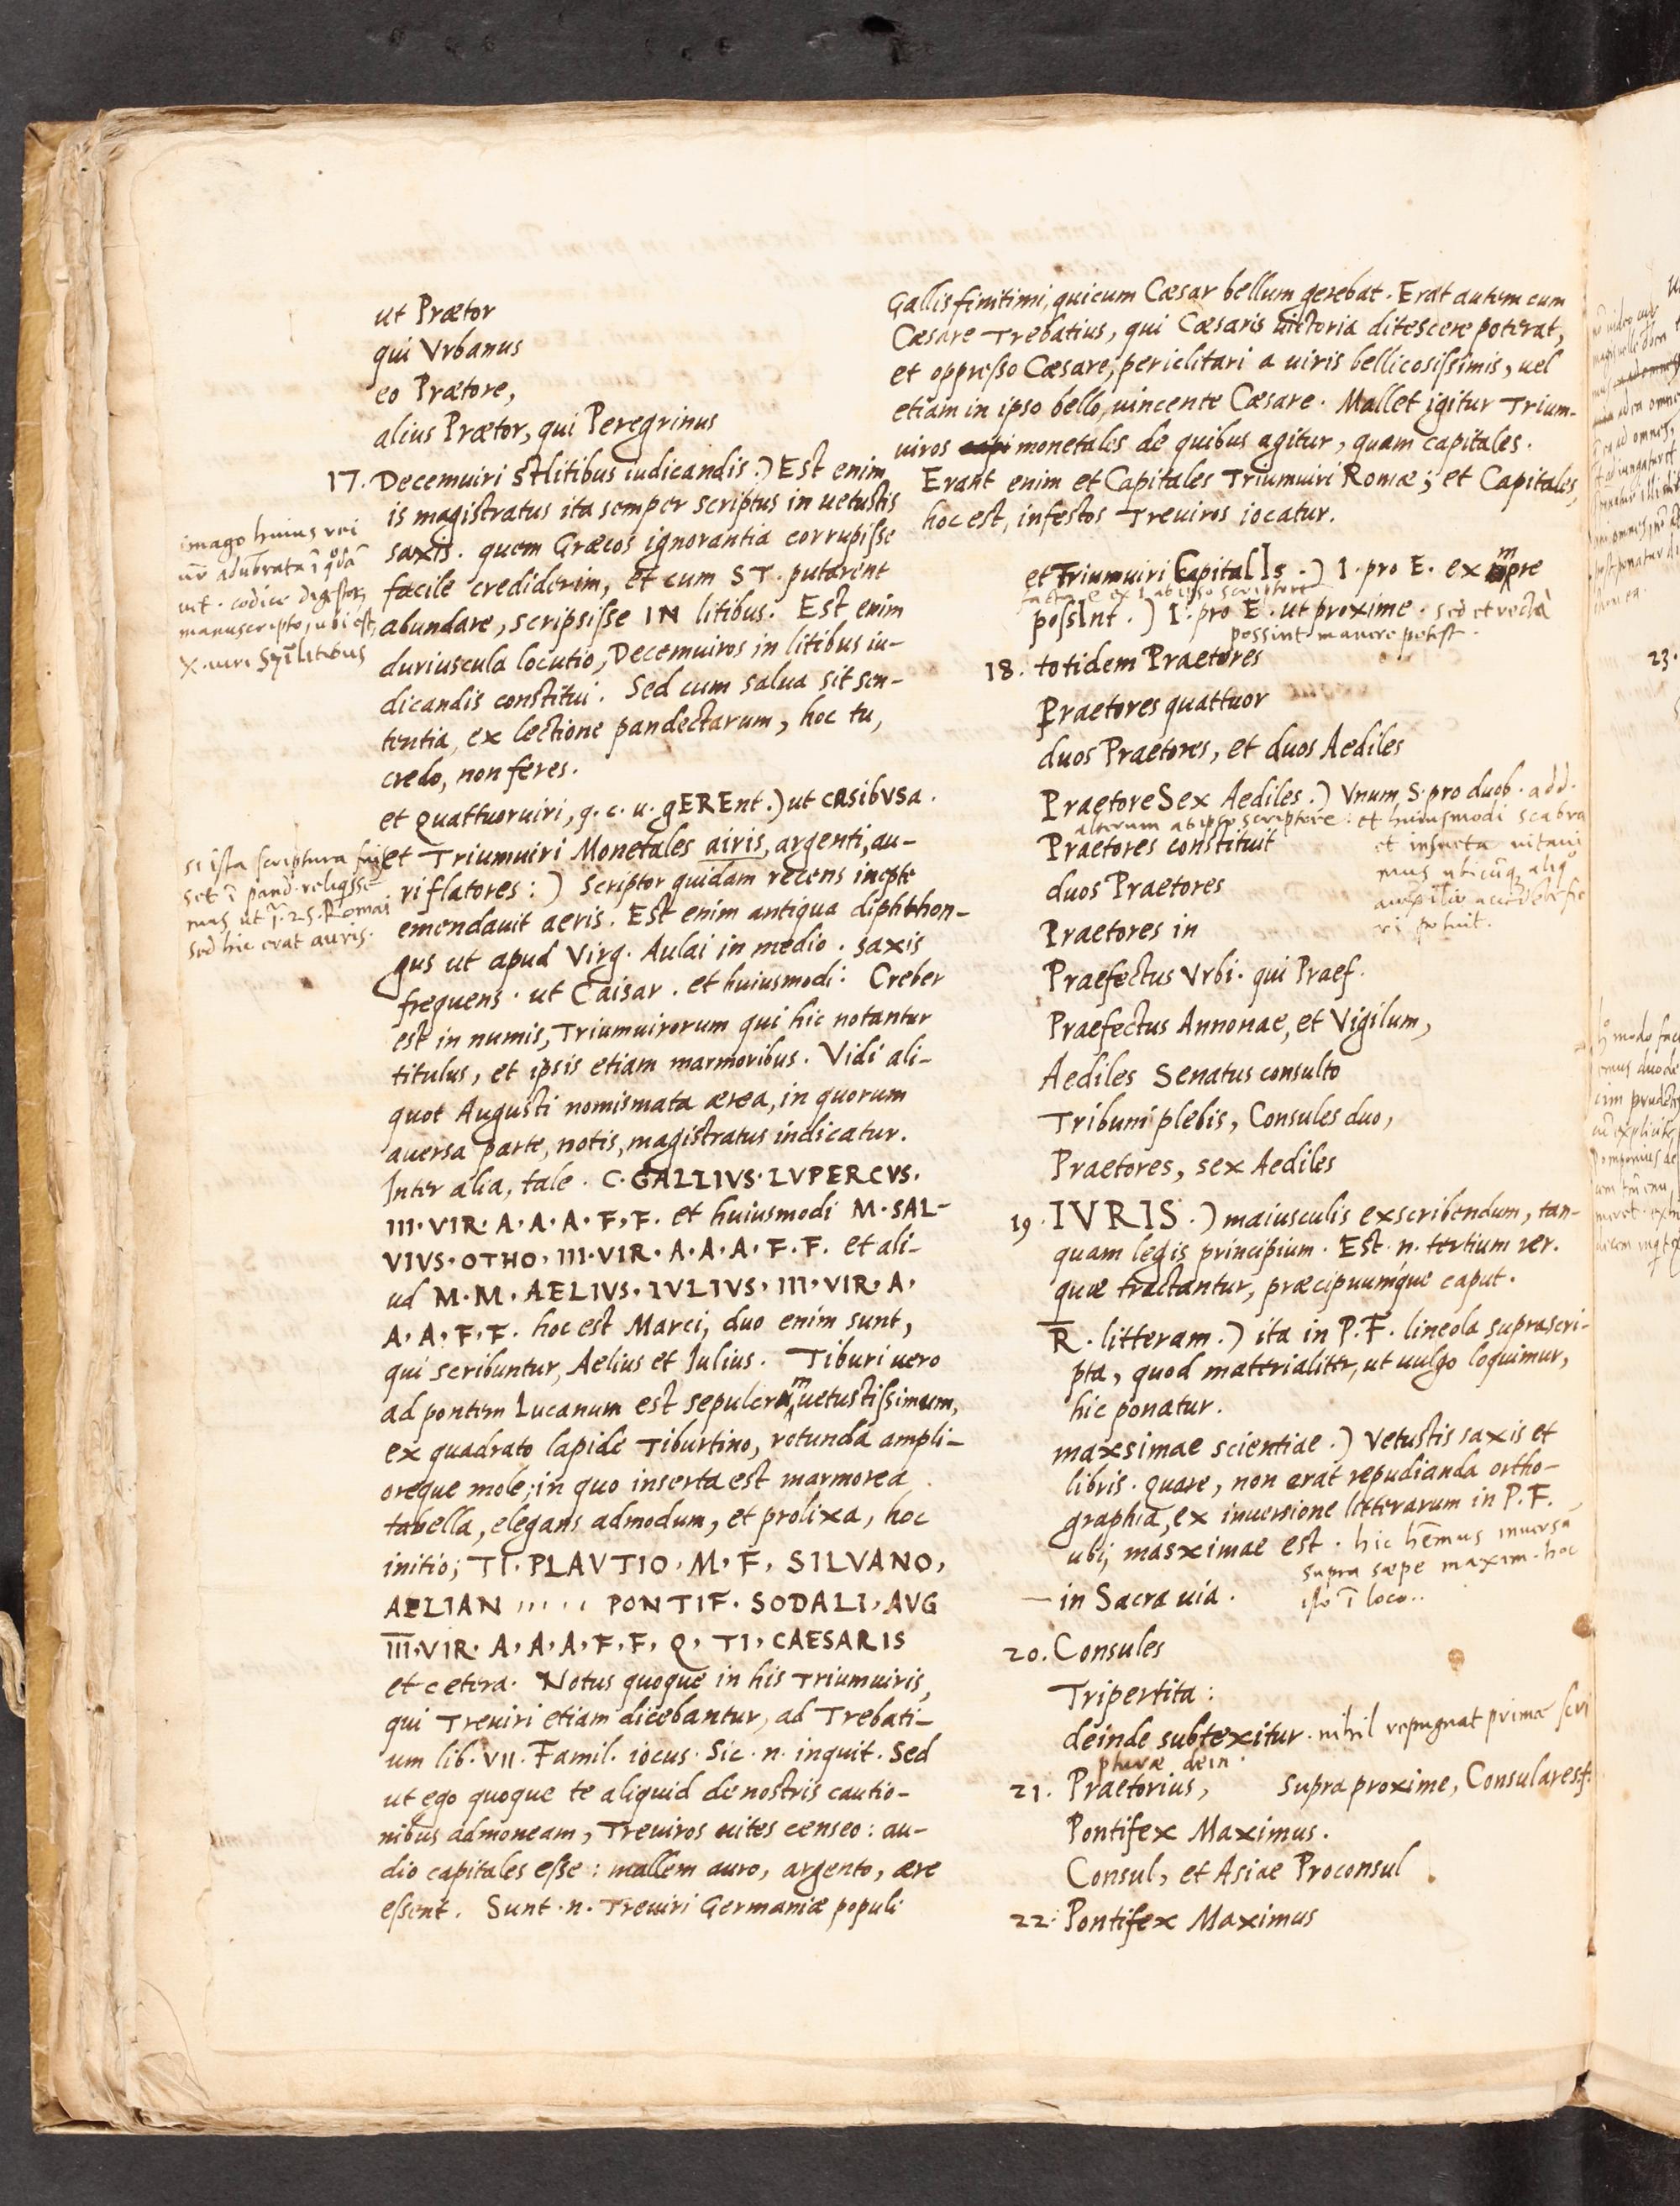 ut Prætor
qui Vrbanus
eo Prætore,
alius Prætor, qui Peregrinus
17. Decemuiri Stlitibus iudicandis.) Est enim
is magistratus ita semper scriptus in uetustis
saxis. quem Græcos ignorantia corrupisse
facile crediderim, et cum ST. putarent
abundare, scripsisse IN litibus. Est enim
duriuscula locutio, Decemuiros in litibus iu-
dicandis constitui. Sed cum salua sit sen-
tentia, ex lectione pandectarum, hoc tu,
credo, non feres.
et Quattuoruiri, q. c. u. gEREnt.) ut casibvsa.
et Triumuiri Monetales airis, argenti, au-
ri flatores:) Scriptor quidam recens inepte
emendauit aeris. Est enim antiqua diphthon-
gus ut apud Virg. Aulai in medio. saxis
frequens. ut Caisar. et huiusmodi: Creber
est in numis, Triumuirorum qui hic notantur
titulus, et ipsis etiam marmoribus. Vidi ali-
quot Augusti nomismata ærea, in quorum
auersa parte, notis, magistratus indicatur.
Inter alia, tale. C. GALLIVS. LVPERCVS.
III. VIR. A. A. A. F. F. et huiusmodi M. SAL-
VIVS. OTHO. III. VIR. A. A. A. F. F. et ali-
ud M. M. AELIVS. IVLIVS. III. VIR. A.
A. A. F. F. hoc est Marci, duo enim sunt,
qui scribuntur, Aelius et Julius. Tiburi uero
ad pontem Lucanum est sepulcrum uetustissimum,
ex quadrato lapide Tiburtino, rotunda ampli-
oreque mole; in quo inserta est marmorea
tabella, elegans admodum, et prolixa, hoc
initio; TI. PLAVTIO. M. F. SILVANO,
AELIAN ..... PONTIF. SODALI. AVG
III. VIR. A. A. A. F. F. Q. TI. CAESARIS
et cetera. Notus quoque in his Triumuiris,
qui Treuiri etiam dicebantur, ad Trebati-
um lib. VII. Famil. iocus. Sic. n. inquit. Sed
ut ego quoque te aliquid de nostris cautio-
nibus admoneam, Treuiros uites censeo: au-
dio capitales esse: mallem auro, argento, ære
essent. Sunt. n. Treuiri Germaniæ populi
imago huius rei
adubrata
vet. codice
manuscripto, ubi est,
X. uiri litibus
si ista scriptura
25. Romai
sed hic erat auris.
Gallis finitimi, quicum Cæsar bellum gerebat. Erat autem cum
Cæsare Trebatius, qui Cæsaris uictoria ditescere poterat,
et oppresso Cæsare, periclitari a uiris bellicosissimis, uel
etiam in ipso bello, uincente Cæsare. Mallet igitur Trium-
uiros monetales de quibus agitur, quam capitales.
Erant enim et Capitales Triumuiri Romæ; et Capitales,
hoc est, infestos Treuiros iocatur.
et Triumuiri CapitalIs.) I. pro E. ex
ex I ab ipso scriptore
possInt.) I. pro E. ut proxime. sed et recta
possint manere potest.
18. totidem Praetores
Praetores quattuor
duos Praetores, et duos Aediles
PraetoreSex Aediles.) Vnum S. pro duob. add.
alterum ab ipso scriptore: et huiusmodi scabra
Praetores constituit
et
duos Praetores
potuit.
Praetores in
Praefectus Vrbi. qui Praef.
Praefectus Annonae, et Vigilum,
Aediles Senatus consulto
Tribuni plebis, Consules duo,
Praetores, sex Aediles
19. IVRIS.) maiusculis exscribendum, tan-
quam legis principium. Est. n. tertium rer.
quæ tractantur, præcipuumque caput.
R. litteram.) ita in P. F. lineola suprascri-
pta, quod materialiter, ut uulgo loquimur,
hic ponatur.
maxsimae scientiae.) Vetustis saxis et
libris. quare, non erat repudianda ortho-
graphia, ex inuersione litterarum in P. F.
ubi, masximae est. hic hemus inuersa
supra sæpe maxim. hoc
isto i loco..
in Sacra uia.
20. Consules
Tripertita:
deinde subtexitur. nihil repugnat primæ scri
pturæ dein.
21. Praetorius, supra proxime, Consulares. f.
Pontifex Maximus.
Consul, et Asiae Proconsul
22. Pontifex Maximus
23.